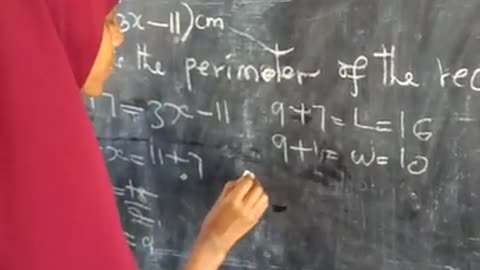 3x-11)cm
the perimeter of the rec
7=3x-11
x=11+7
=18
2
=9
9+7=L=16
9+1=W=10